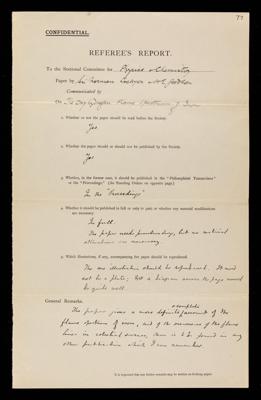 77
CONFIDENTIAL.
REFEREE'S REPORT.
To the Sectional Committee for Physics & Chemistry
Paper by Sir Norman Lockyer & H E Goodson
Communicated by
On The Oxyhydrogen Flame Spectrum of Iron
1. Whether or not the paper should be read before the Society.
Yes
2. Whether the paper should or should not be published by the Society.
Yes
3. Whether, in the former case, it should be published in the "Philosophical Transactions"
or the "Proceedings" (See Standing Orders on opposite page)
In the "Proceedings"
4. Whether it should be published in full or only in part; or whether any material modifications
are necessary
In full.
The paper needs punctuating, but no material
alterations are necessary.
5. Which illustrations, if any, accompanying the paper should be reproduced
The one illustration should be reproduced. It need
not be a plate; but a diagram across the page would
be quite well.
General Remarks.
complete
The paper gives a more definite & account of the
flame spectrum of iron, and of the occurrence of the flame
lines in celestial sources, than is to be found in any
other publication which I can remember.
It is requested that any further remarks may be written on